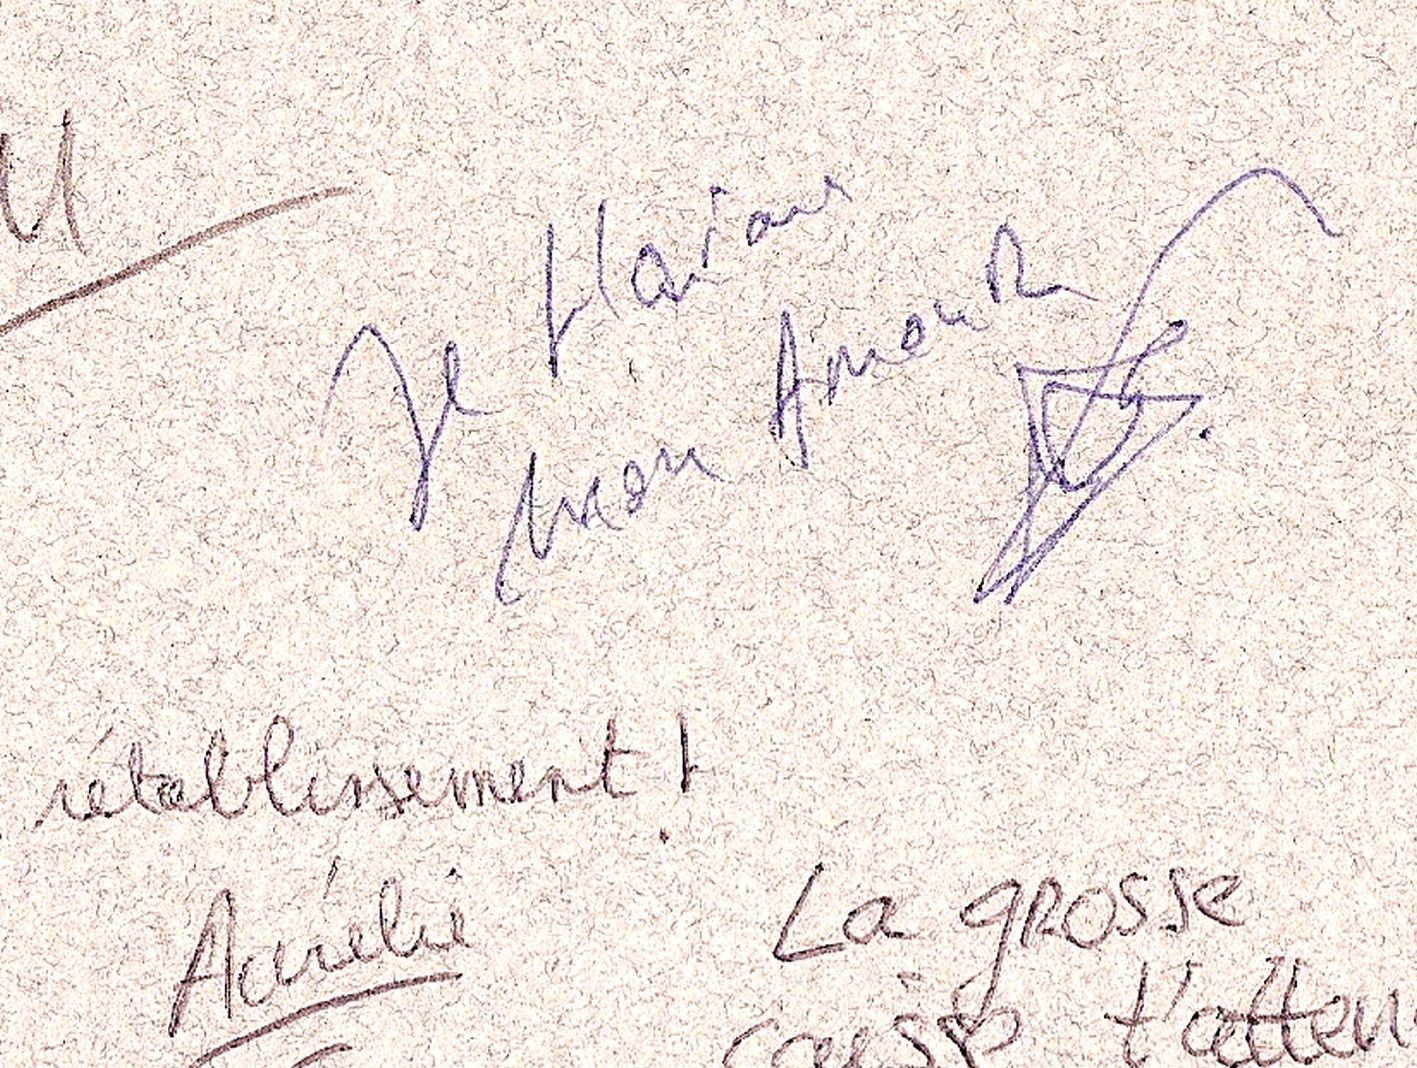 Je
mon Amour
rétablissement !
Aurélie
La grosse
caisse t'atten